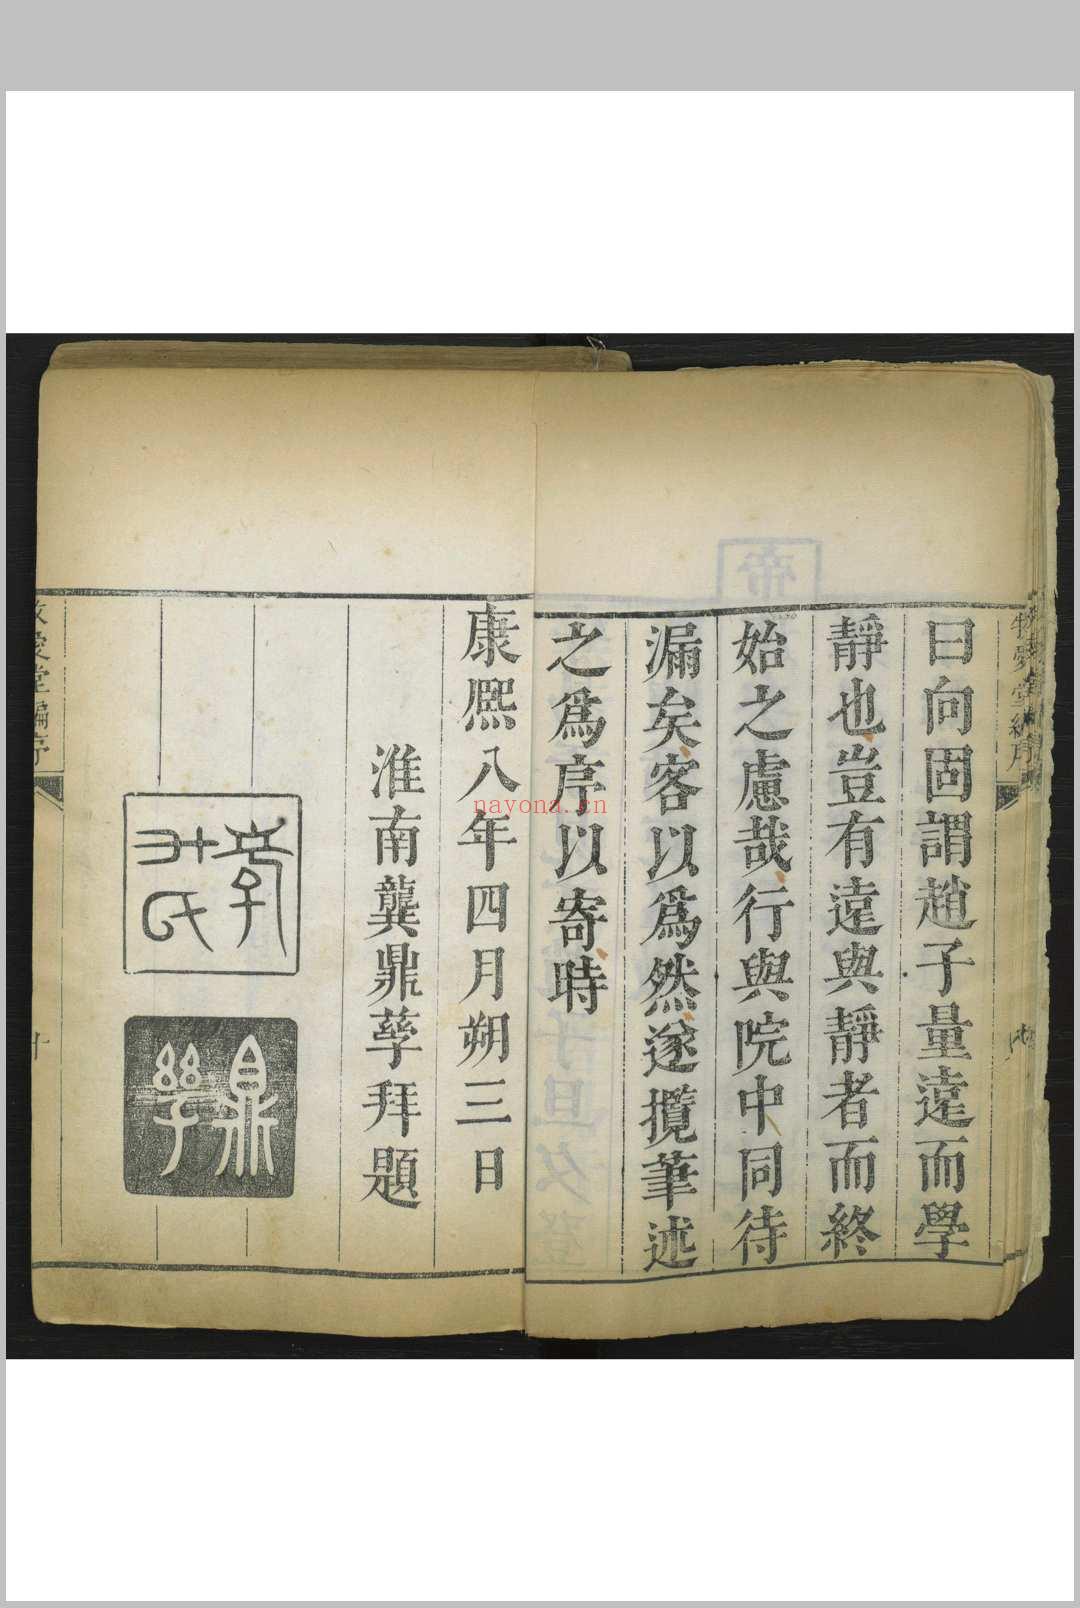 曰向固謂趙子量遠而學
靜也豈有遠與靜者而終
始之慮哉行與院中同待
漏矣客以爲然遂攬筆述
之爲序以寄時
康熈八年四月朔三日
淮南龔鼎孳拜題
孝升氏
鼎孳
愛堂編序
十
nayona.cn